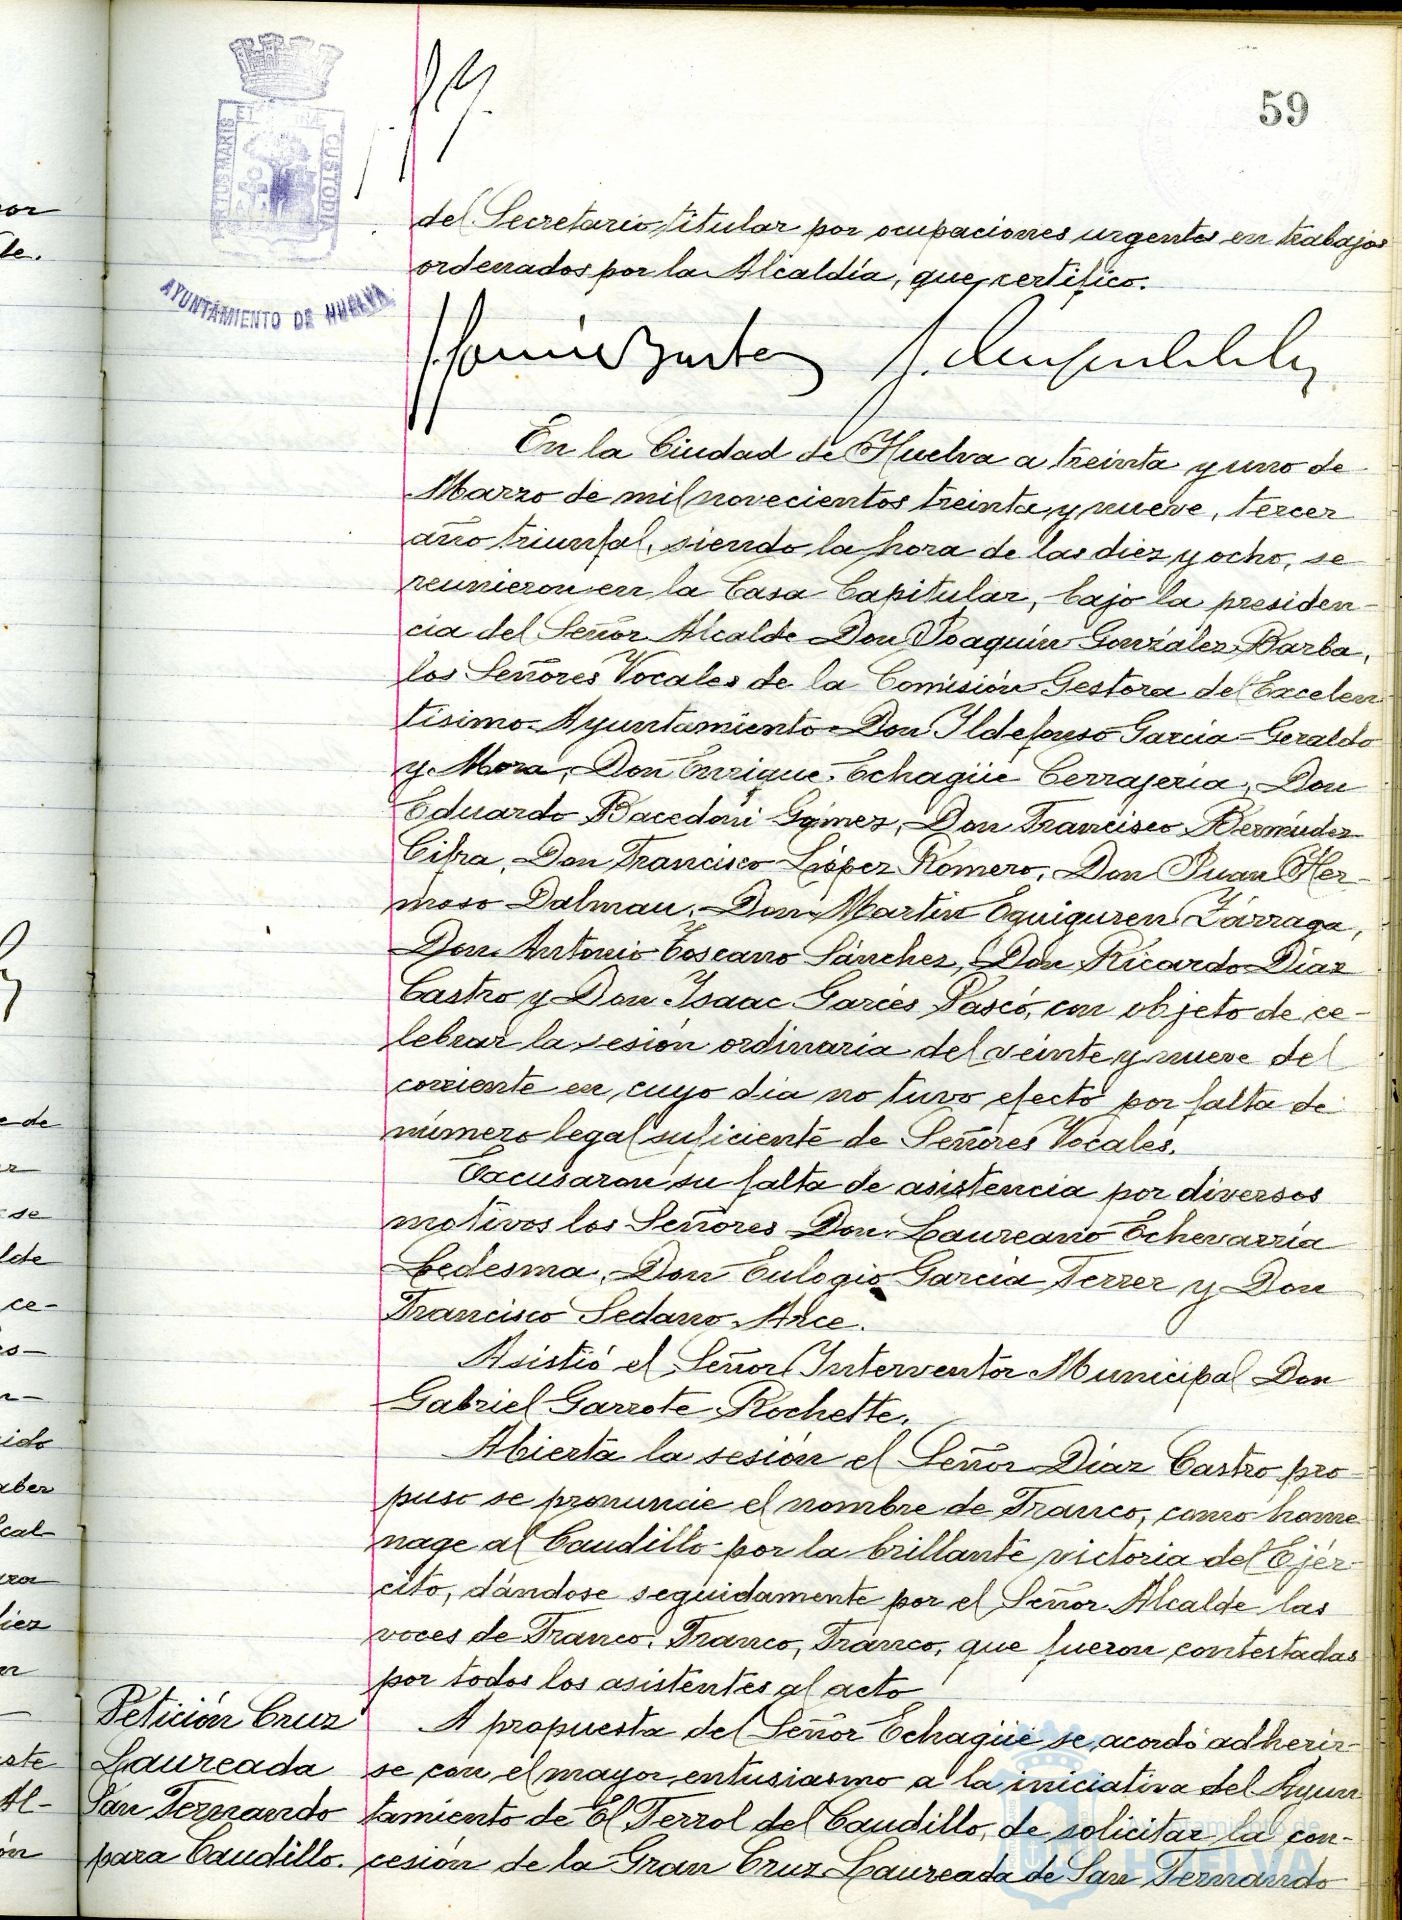 59
PORTUS MARIS ET TERRAE CUSTODIA
AYUNTAMIENTO DE HUELVA
del Secretario titular por ocupaciones urgentes en trabajos
ordenados por la Alcaldía, que certifico.
En la Ciudad de Huelva a treinta y uno de
Marzo de mil novecientos treinta y nueve, tercer
año triunfal, siendo la hora de las diez y ocho, se
reunieron en la Casa Capitular, bajo la presiden-
cia del Señor Alcalde Don Joaquín González Barba,
los Señores Vocales de la Comisión Gestora del Excelen-
tísimo Ayuntamiento Don Ildefonso García-Geraldo
y Mora, Don Enrique Echagüe Cerrajería, Don
Eduardo Bacedoni Gómez, Don Francisco Bermúdez
Cifra, Don Francisco López Romero, Don Juan Her-
moso Dalmau, Don Martín Eguiguren Zárraga,
Don Antonio Toscano Sánchez, Don Ricardo Díaz
Castro y Don Isaac Garcés Pascó, con objeto de ce-
lebrar la sesión ordinaria del veinte y nueve del
corriente en cuyo día no tuvo efecto por falta de
número legal suficiente de Señores Vocales.
Excusaron su falta de asistencia por diversos
motivos los Señores Don Laureano Echevarría
Ledesma, Don Eulogio García Ferrer y Don
Francisco Sedano Arce.
Asistió el Señor Interventor Municipal Don
Gabriel Garrote Rochette.
Abierta la sesión el Señor Díaz Castro pro-
puso se pronuncie el nombre de Franco, como home
nage al Caudillo por la brillante victoria del Ejér-
cito, dándose seguidamente por el Señor Alcalde las
voces de Franco, Franco, Franco, que fueron contestadas
por todos los asistentes al acto
Petición Cruz
Laureada
San Fernando
para Caudillo.
A propuesta del Señor Echagüe se acordó adherir-
se con el mayor entusiasmo a la iniciativa del Ayun
tamiento de El Ferrol del Caudillo, de solicitar la con-
cesión de la Gran Cruz Laureada de San Fernando
Ayuntamiento de
HUELVA